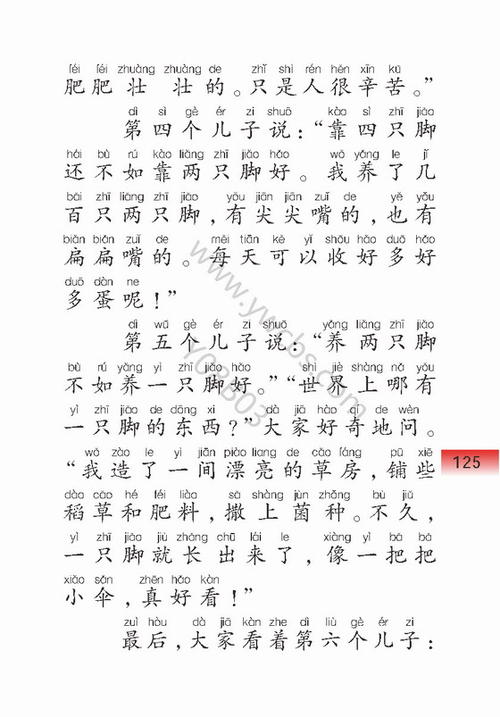 féi féi zhuàng zhuàng de zhǐ shì rén hěn xīn kǔ
肥肥壮壮的。只是人很辛苦。”
dì sì gè ér zi shuō kào sì zhī jiǎo
第四个儿子说：“靠四只脚
hái bù rú kào liǎng zhī jiǎo hǎo wǒ yǎng le jǐ
还不如靠两只脚好。我养了几
bǎi zhī liǎng zhī jiǎo yǒu jiān jiān zuǐ de yě yǒu
百只两只脚，有尖尖嘴的，也有
biǎn biǎn zuǐ de měi tiān kě yǐ shōu hǎo duō hǎo
扁扁嘴的。每天可以收好多好
duō dàn ne
多蛋呢！”
dì wǔ gè ér zi shuō yǎng liǎng zhī jiǎo
第五个儿子说：“养两只脚
bù rú yǎng yì zhī jiǎo hǎo shì jiè shàng nǎ yǒu
不如养一只脚好。”“世界上哪有
yì zhī jiǎo de dōng xi dà jiā hào qí de wèn
一只脚的东西？”大家好奇地问。
wǒ zào le yì jiān piào liang de cǎo fáng pū xiē
“我造了一间漂亮的草房，铺些
dào cǎo hé féi liào sǎ shàng jùn zhǒng bù jiǔ
稻草和肥料，撒上菌种。不久，
yì zhī jiǎo jiù zhǎng chū lái le xiàng yì bǎ bǎ
一只脚就长出来了，像一把把
xiǎo sǎn zhēn hǎo kàn
小伞，真好看！”
zuì hòu dà jiā kàn zhe dì liù gè ér zi
最后，大家看着第六个儿子：
125
www.ywcbs.com
Y08B03